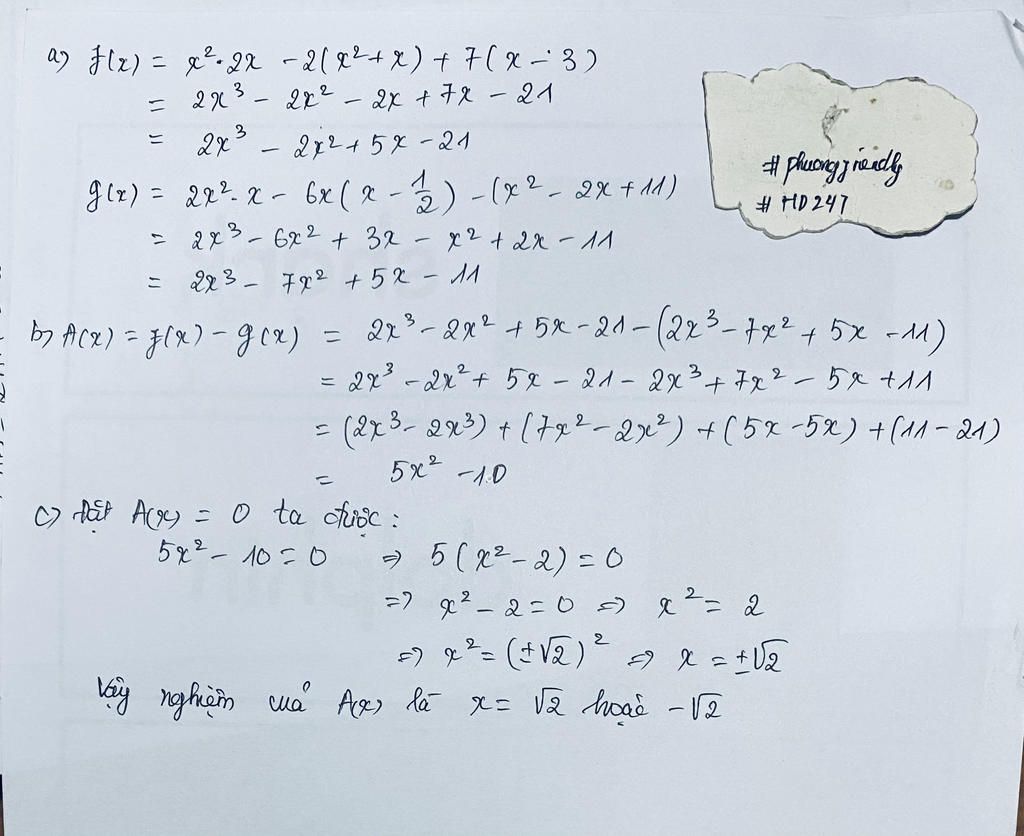 a) f(x) = x².2x - 2(x²+x) + 7(x - 3)
= 2x³ - 2x² - 2x + 7x - 21
= 2x³ - 2x² + 5x - 21
g(x) = 2x².x - 6x(x - 1/2) - (x² - 2x + 11)
= 2x³ - 6x² + 3x - x² + 2x - 11
= 2x³ - 7x² + 5x - 11
#phuongfriendly
#HD247
b) A(x) = f(x) - g(x) = 2x³ - 2x² + 5x - 21 - (2x³ - 7x² + 5x - 11)
= 2x³ - 2x² + 5x - 21 - 2x³ + 7x² - 5x + 11
= (2x³ - 2x³) + (7x² - 2x²) + (5x - 5x) + (11 - 21)
= 5x² - 10
c) Đặt A(x) = 0 ta được :
5x² - 10 = 0 => 5(x² - 2) = 0
=> x² - 2 = 0 => x² = 2
=> x² = (±√2)² => x = ±√2
Vậy nghiệm của A(x) là x = √2 hoặc -√2